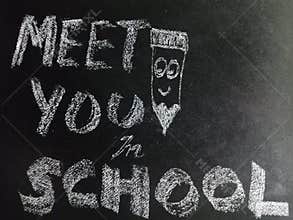 MEET
YOU
In
SCHOOL